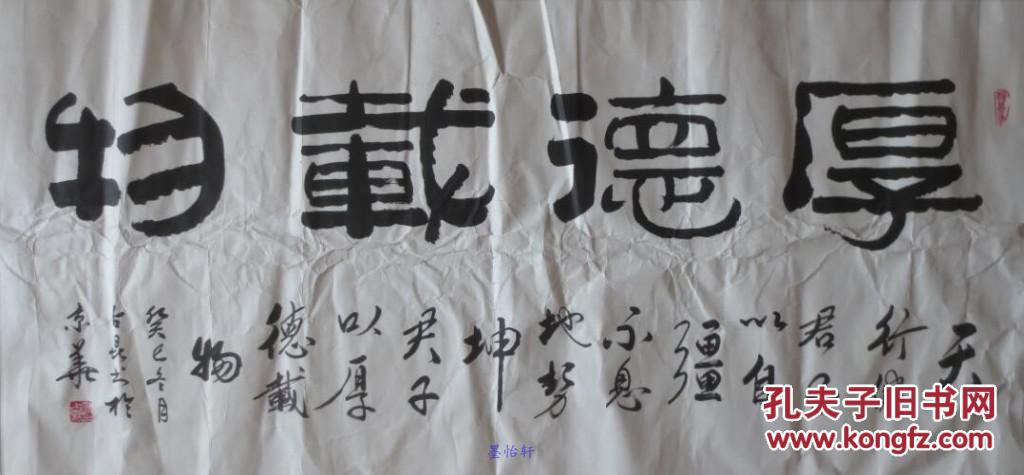 厚德載物
天
行
君子
以自
彊
不息
地勢
坤
君子
以厚
德載
物
癸巳冬月
古昊书於
京華
孔夫子旧书网
www.kongfz.com
墨怡轩